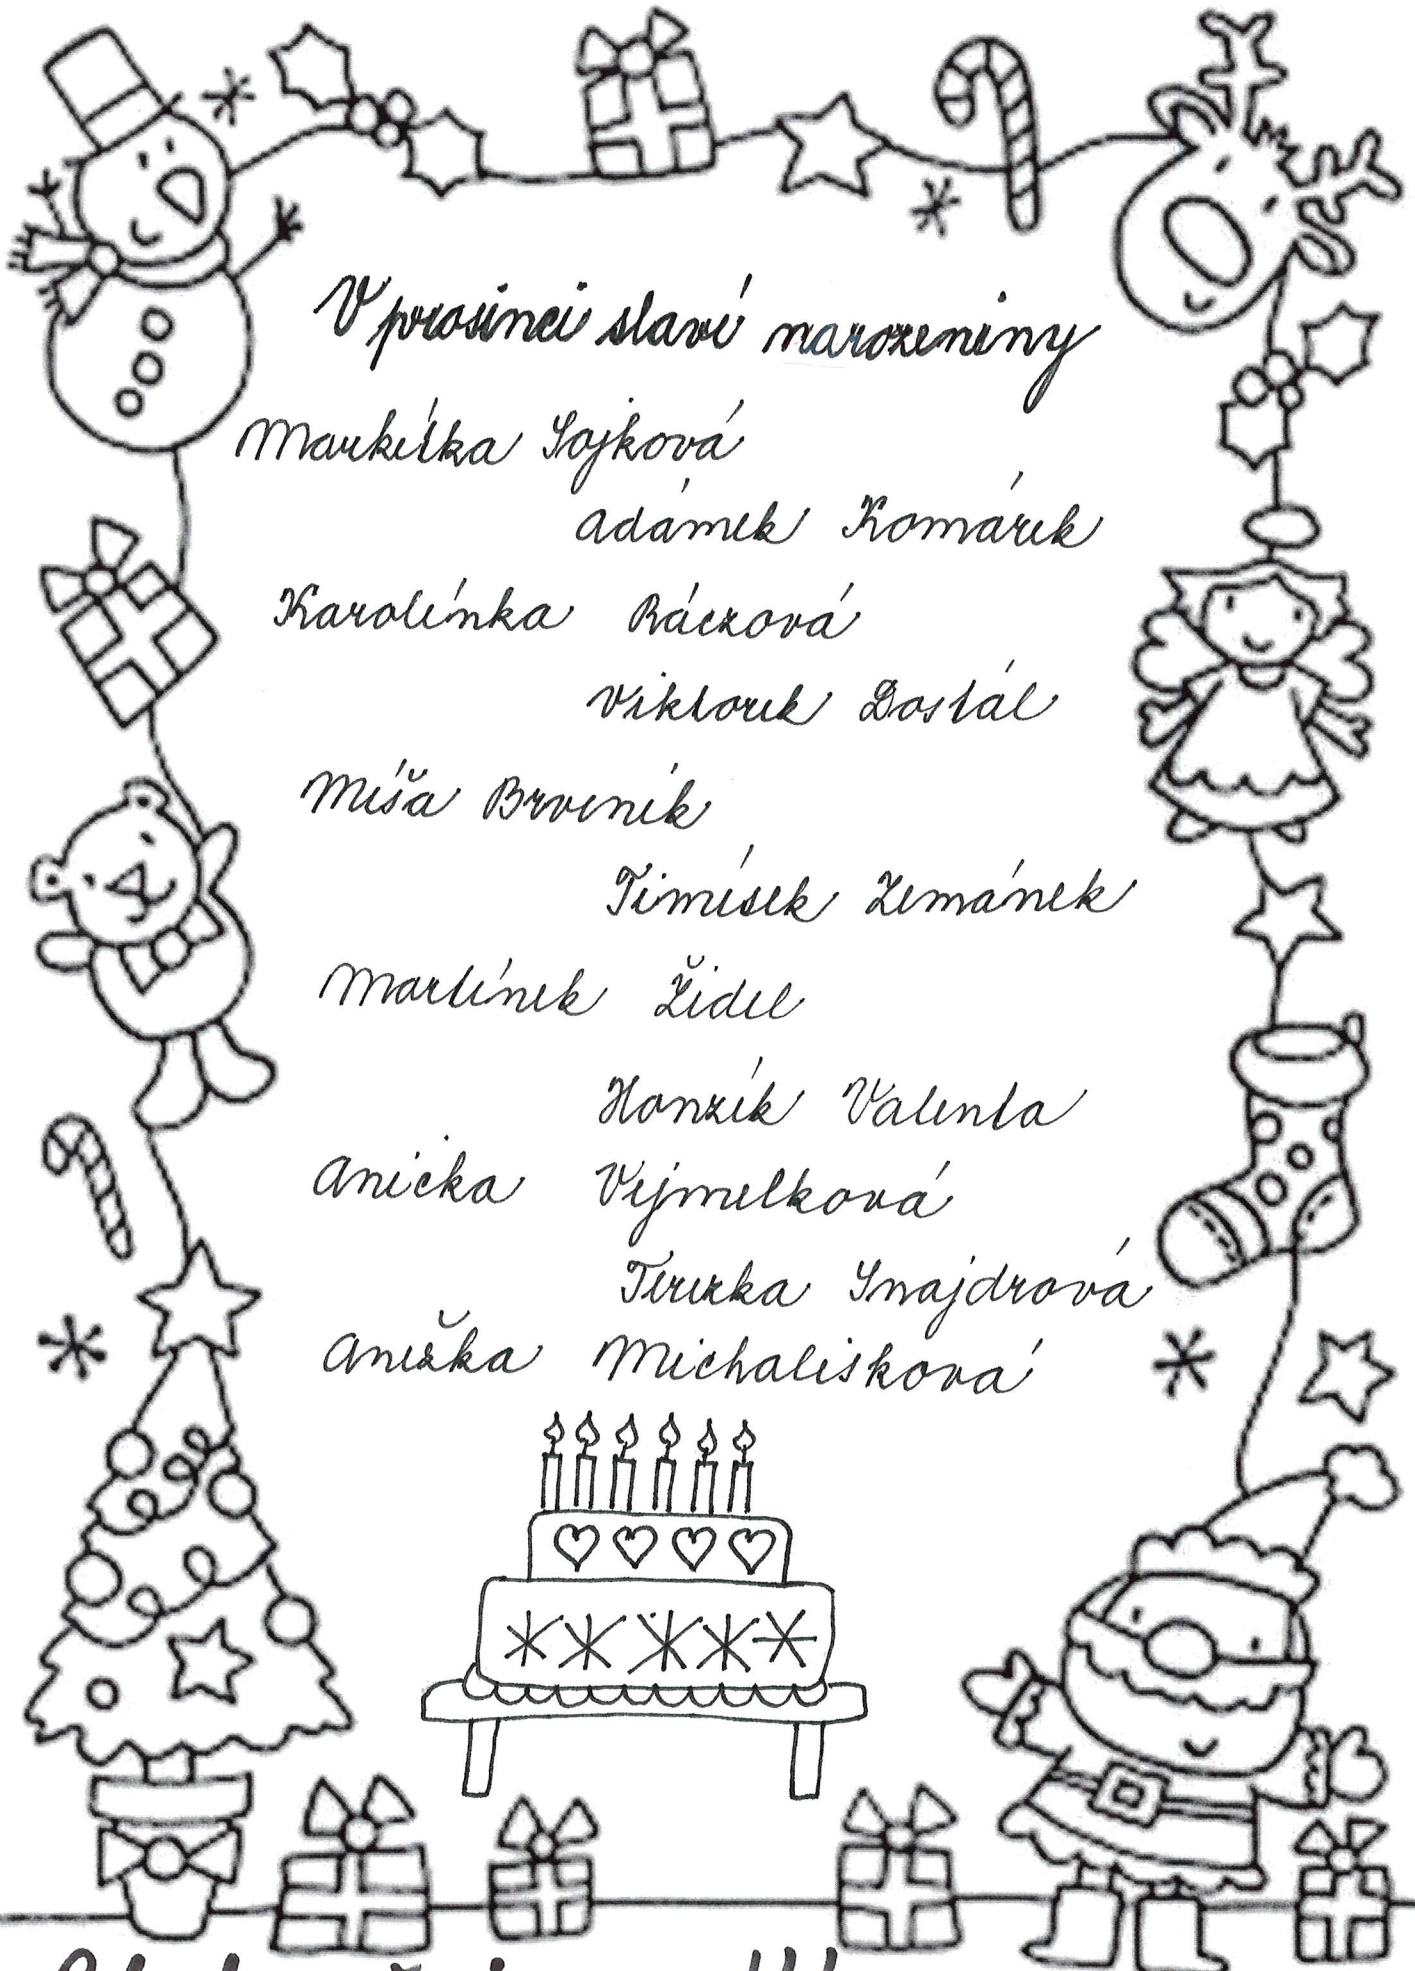 V prosinci slaví narozeniny
Markétka Sojková
Adámek Komárek
Karolínka Ráczová
Viktorek Dostál
Míša Brveník
Timísek Zemánek
Martínek Židel
Honzík Valenta
Anička Vejmelková
Terezka Šnajdrová
Anežka Michalisková